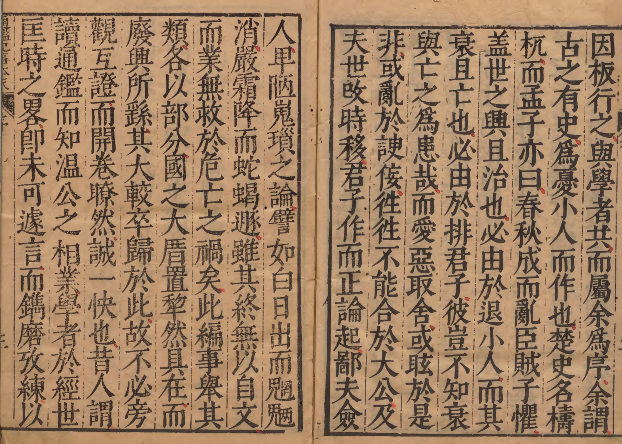 因板行之與學者共而屬余為序余謂
古之有史為憂小人而作也楚史名檮
杌而孟子亦曰春秋成而亂臣賊子懼
盖世之興且治也必由於退小人而其
衰且亡也必由於排君子彼豈不知衰
與亡之為患哉而愛惡取舍或眩於是
非或亂於諛佞徃徃不能合於大公及
夫世改時移君子作而正論起鄙夫僉
人卑陋嵬瑣之論譬如白日出而魍魎
消嚴霜降而蛇蝎遯雖其終無以自文
而業無救於危亡之禍矣此編事舉其
類各以部分國之大厝置犂然具在而
廢興所繇其大較卒歸於此故不必旁
觀互證而開卷瞭然誠一快也昔人謂
讀通鑑而知温公之相業學者於經世
匡時之畧即未可遽言而鐫磨攷練以